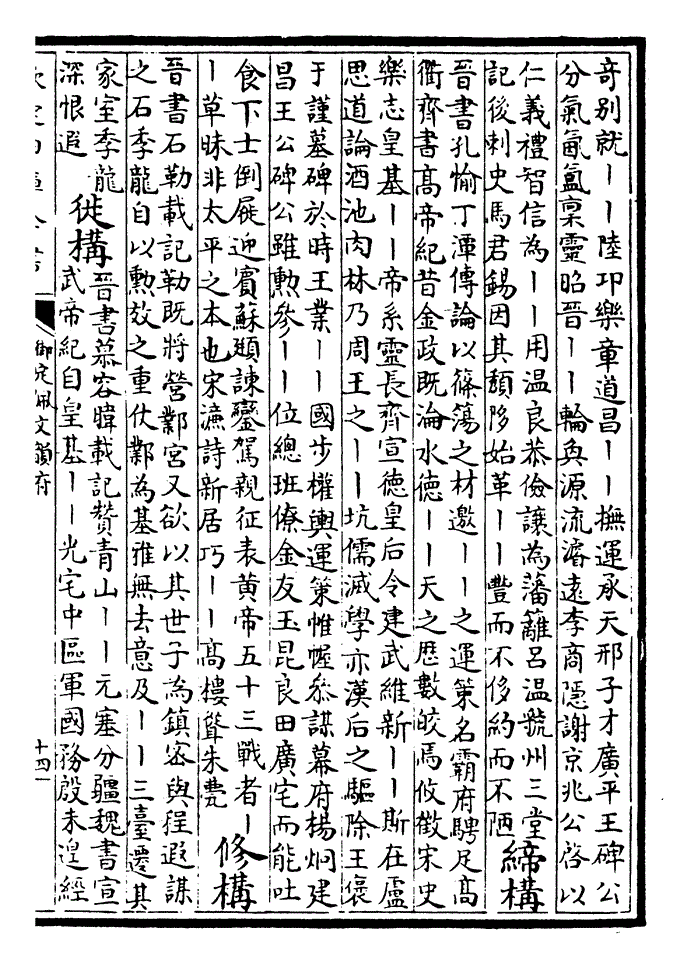 奇別就丨丨陸卭樂章道昌丨丨撫運承天邢子才廣平王碑公
分氣氤氲稟靈昭晉丨丨輪奐源流濬遠李商隱謝京兆公啓以
仁義禮智信為丨丨用温良恭儉讓為藩籬吕温虢州三堂
記後刺史馬君錫因其頽陊始革丨丨豐而不侈約而不陋
締構
晉書孔愉丁潭傳論以篠簜之材邀丨丨之運策名霸府騁足髙
衢齊書髙帝紀昔金政既淪水德丨丨天之歴數皎焉攸徵宋史
樂志皇基丨丨帝系靈長齊宣德皇后令建武維新丨丨斯在盧
思道論酒池肉林乃周王之丨丨坑儒滅學亦漢后之驅除王褒
于謹墓碑於時王業丨丨國步權輿運策惟幄叅謀幕府楊炯建
昌王公碑公雖勲參丨丨位總班僚金友玉昆良田廣宅而能吐
食下士倒屣迎賓蘇頲諫鑾駕親征表黄帝五十三戰者丨
丨草昧非太平之本也宋濂詩新居巧丨丨髙樓聳朱甍
修構
晉書石勒載記勒既將營鄴宫又欲以其世子為鎮宻與程遐謀
之石季龍自以勲效之重仗鄴為基雅無去意及丨丨三臺遷其
家室季龍
深恨遐
徙構
晉書慕容暐載記贊青山丨丨元塞分疆魏書宣
武帝紀自皇基丨丨光宅中區軍國務殷未遑經
欽定四庫全書
御定佩文韻府
十四